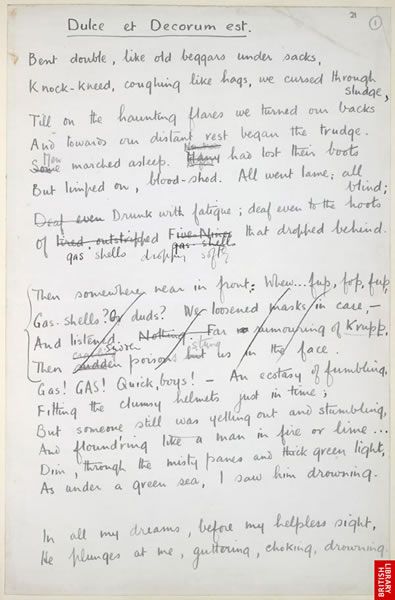 21
1
Dulce et Decorum est.
Bent double, like old beggars under sacks,
Knock-kneed, coughing like hags, we cursed through
sludge,
Till on the haunting flares we turned our backs
And towards our distant rest began the trudge.
Men
Some marched asleep. Many had lost their boots
But limped on, blood-shod. All went lame; all
blind;
Deaf even Drunk with fatigue; deaf even to the hoots
Of tired, outstripped Five-Nines that dropped behind.
gas-shell
gas shells dropping softly
Then somewhere near in front: Whew... fup, fop, fup,
Gas-shells? Or duds? We loosened masks in case, —
And listened. Nothing. Far rumouring of Krupp,
stung
Then sudden poisons hit us in the face.
Gas! GAS! Quick, boys! — An ecstasy of fumbling,
Fitting the clumsy helmets just in time;
But someone still was yelling out and stumbling,
And flound'ring like a man in fire or lime...
Dim, through the misty panes and thick green light,
As under a green sea, I saw him drowning.
In all my dreams, before my helpless sight,
He plunges at me, guttering, choking, drowning.
BRITISH
LIBRARY